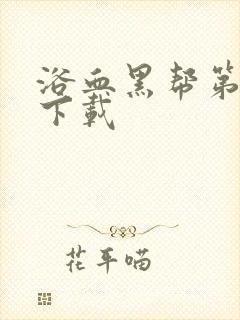 浴血黑帮第
下载
花平喵